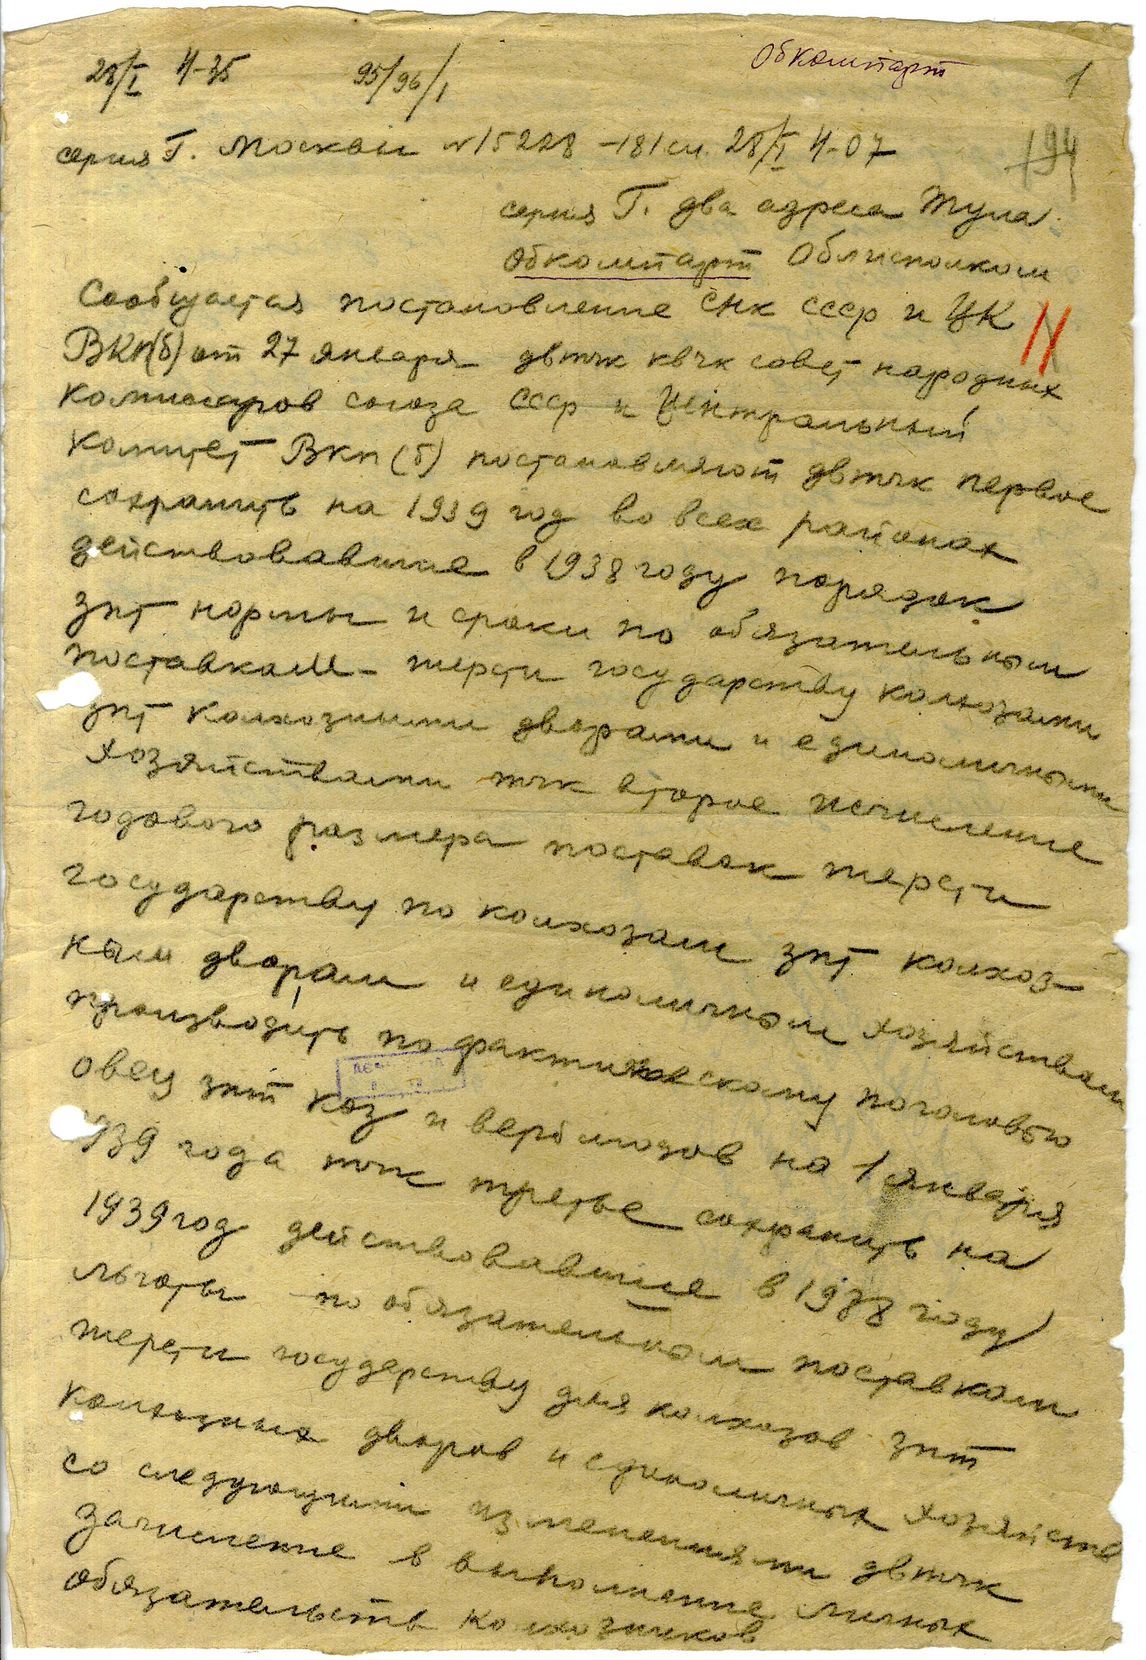 28/I 4-35 95/96/1 Обкомпарт 1
серия Г. Москвы №15228-181сл. 28/I 4-07 194
серия Г. два адреса Тула
Обкомпарт Облисполком
Сообщается постановление СНК СССР и ЦК
ВКП(б) от 27 января двтчк квчк совет народных
комиссаров союза СССР и Центральный
комитет ВКП(б) постановляют двтчк первое
сохранить на 1939 год во всех районах
действовавшие в 1938 году порядок
зпт нормы и сроки по обязательным
поставкам шерсти государству колхозами
зпт колхозными дворами и единоличными
хозяйствами тчк второе исчисление
годового размера поставок шерсти
государству по колхозам зпт колхоз-
ным дворам и единоличным хозяйствам
производить по фактическому поголовью
овец зпт коз и верблюдов на 1 января
1939 года тчк третье сохранить на
1939 год действовавшие в 1938 году
льготы по обязательным поставкам
шерсти государству для колхозов зпт
колхозных дворов и единоличных хозяйств
со следующими изменениями двтчк
зачисление в выполнение личных
обязательств колхозников